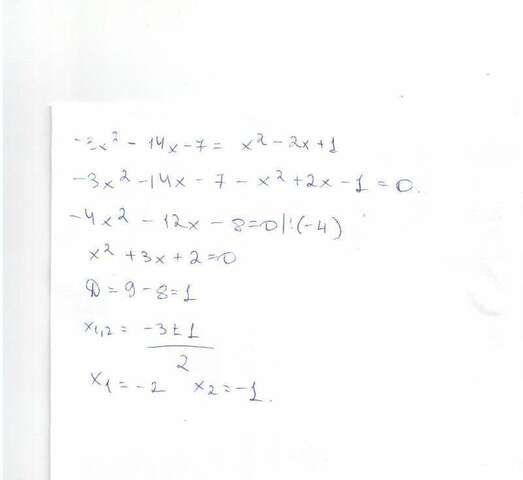 -3x² - 14x - 7 = x² - 2x + 1
-3x² - 14x - 7 - x² + 2x - 1 = 0.
-4x² - 12x - 8 = 0 |:(-4)
x² + 3x + 2 = 0
D = 9 - 8 = 1
x₁,₂ = -3 ± 1
2
x₁ = -2 x₂ = -1.